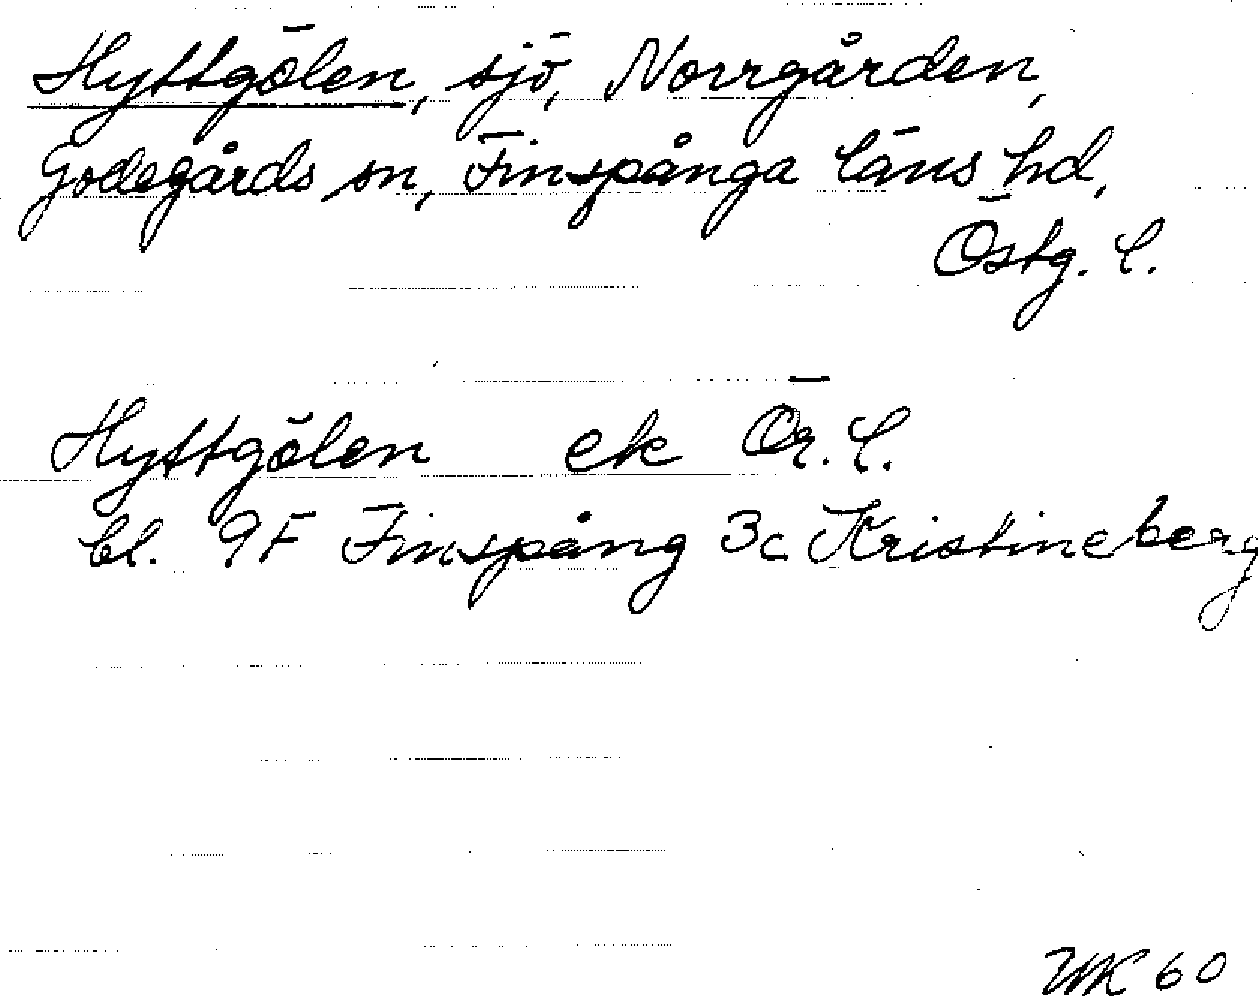 Hyttgölen, sjö, Norrgården,
Godegårds sn, Finspånga läns hd,
Östg. l.
Hyttgölen ek Ör. l.
bl. 9F Finspång 3c Kristineberg
WK 60